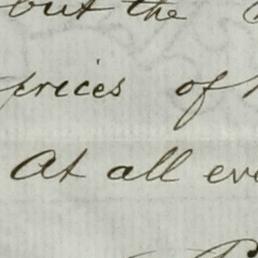 but the
prices of
At all eve